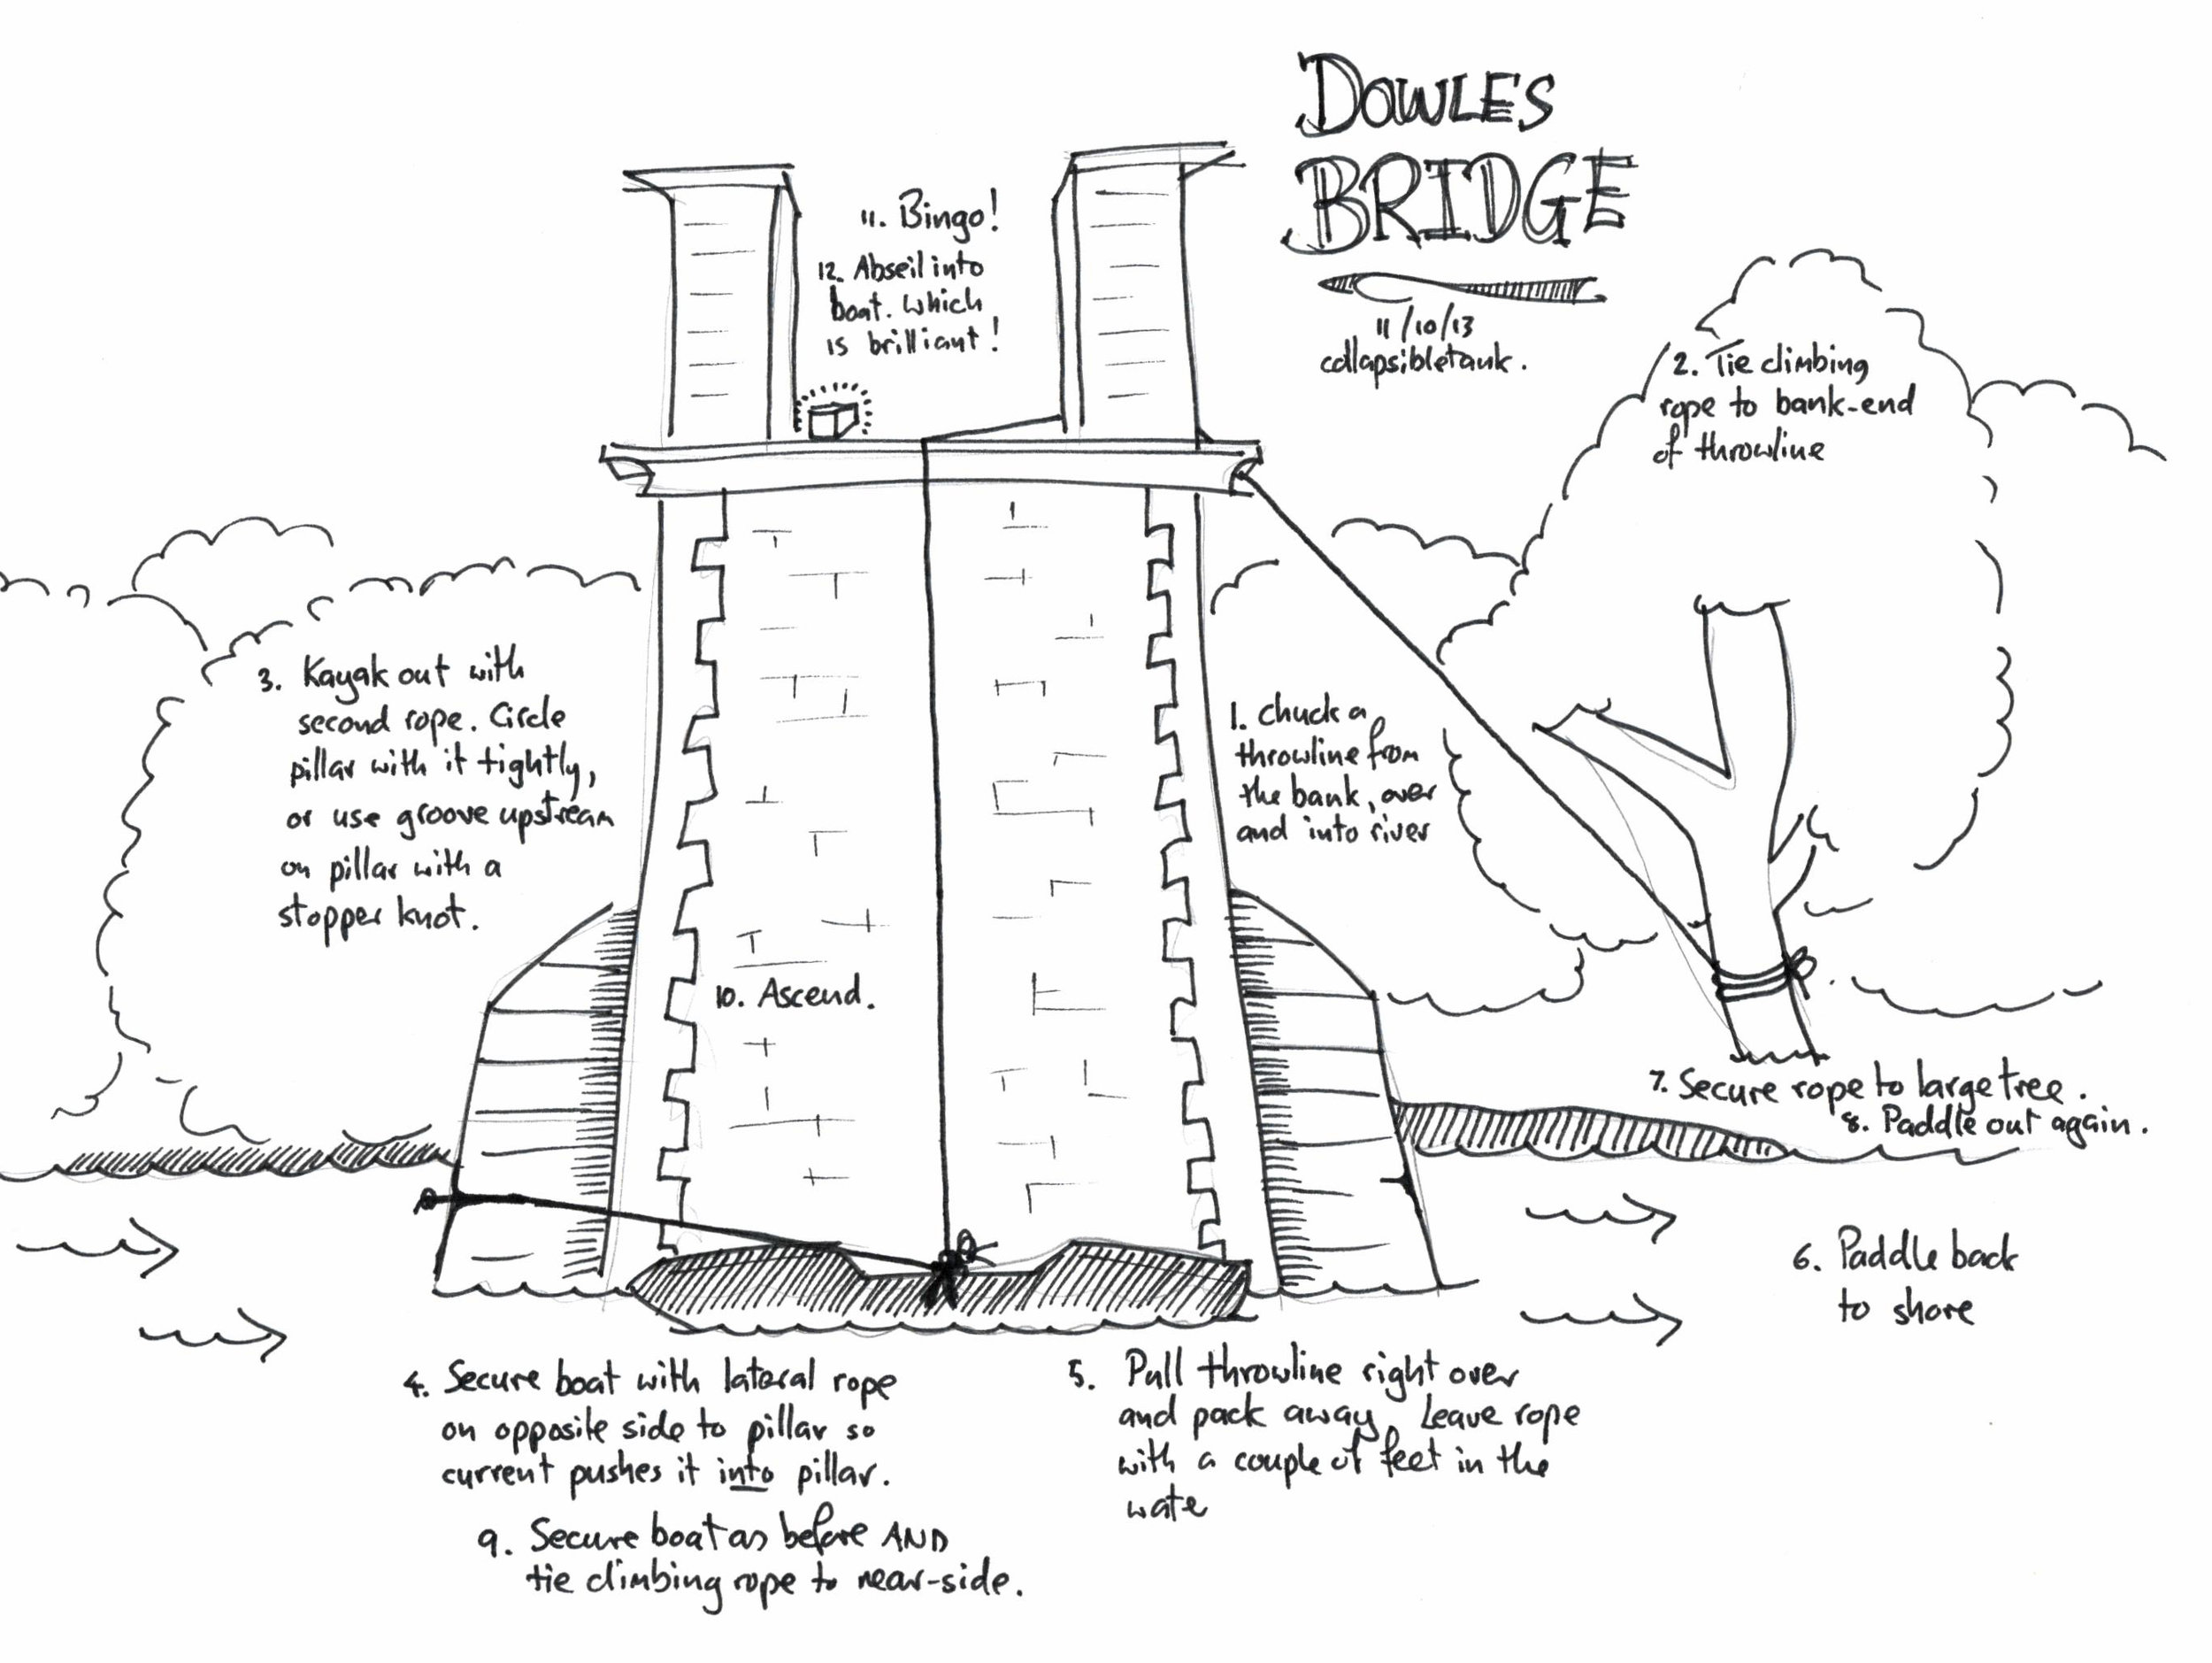 DOWLES
BRIDGE
11/10/13
collapsibletank.
11. Bingo!
12. Abseil into
boat. which
is brilliant!
2. Tie climbing
rope to bank-end
of throwline
3. Kayak out with
second rope. Circle
pillar with it tightly,
or use groove upstream
on pillar with a
stopper knot.
1. chuck a
throwline from
the bank, over
and into river
10. Ascend.
7. Secure rope to large tree.
8. Paddle out again.
6. Paddle back
to shore
4. Secure boat with lateral rope
on opposite side to pillar so
current pushes it into pillar.
5. Pull throwline right over
and pack away. Leave rope
with a couple of feet in the
wate
9. Secure boat as before AND
tie climbing rope to near-side.